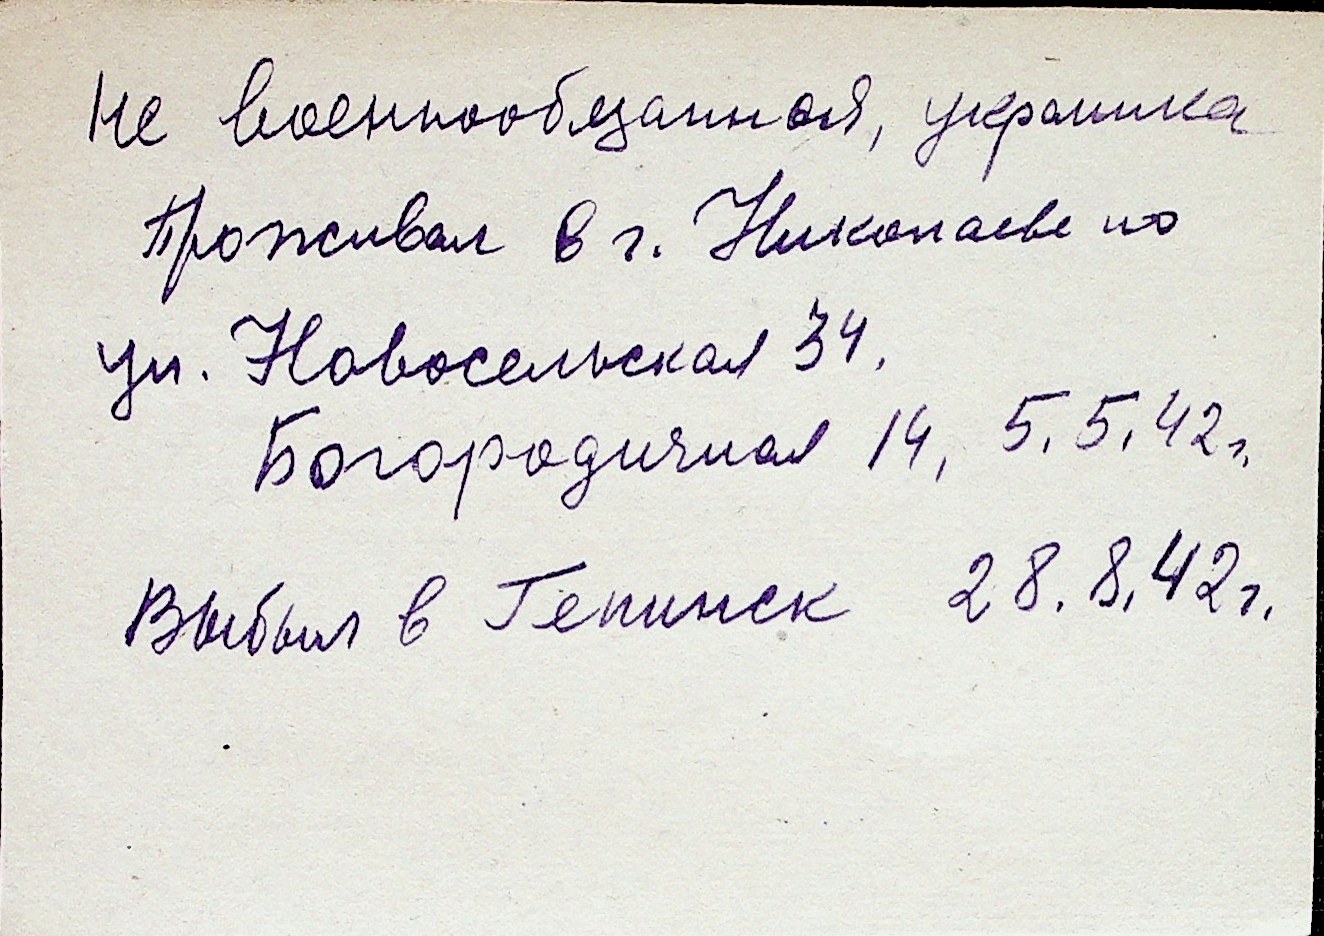 Не военнообязанная, украинка
Проживал в г. Николаеве по
ул. Новосельская 34.
Богородичная 14, 5.5.42г.
Выбыл в Генинск 28.8.42г.